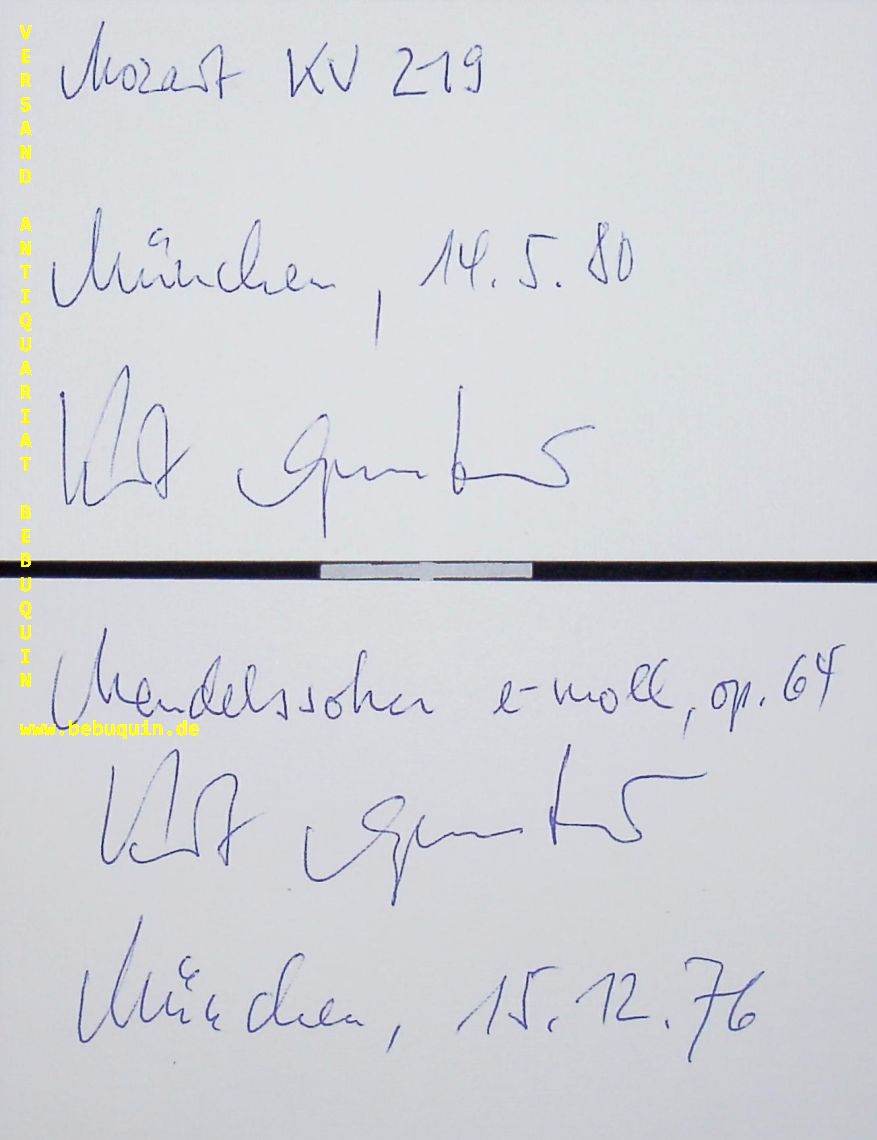 Mozart KV 219
München, 14.5.80
Mendelssohn e-moll, op. 64
München, 15.12.76
VERSAND ANTIQUARIAT BEBUQUIN
www.bebuquin.de